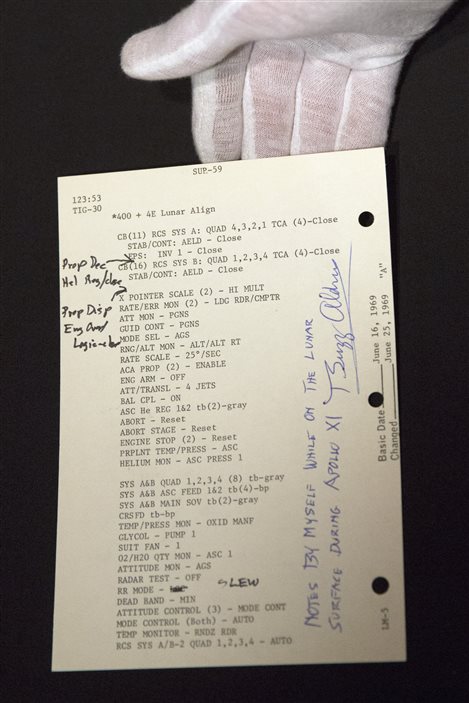 SUP-59
123:53
TIG-30
*400 + 4E Lunar Align
CB(11) RCS SYS A: QUAD 4,3,2,1 TCA (4)-Close
STAB/CONT: AELD - Close
EPS: INV 1 - Close
CB(16) RCS SYS B: QUAD 1,2,3,4 TCA (4)-Close
STAB/CONT: AELD - Close
Prop Dec
Hel Reg/close
X POINTER SCALE (2) - HI MULT
RATE/ERR MON (2) - LDG RDR/CMPTR
Prop Disp
Eng Ovrd
Logic-close
ATT MON - PGNS
GUID CONT - PGNS
MODE SEL - AGS
RNG/ALT MON - ALT/ALT RT
RATE SCALE - 25°/SEC
ACA PROP (2) - ENABLE
ENG ARM - OFF
ATT/TRANSL - 4 JETS
BAL CPL - ON
ASC He REG 1&2 tb(2)-gray
ABORT - Reset
ABORT STAGE - Reset
ENGINE STOP (2) - Reset
PRPLNT TEMP/PRESS - ASC
HELIUM MON - ASC PRESS 1
SYS A&B QUAD 1,2,3,4 (8) tb-gray
SYS A&B ASC FEED 1&2 tb(4)-bp
SYS A&B MAIN SOV tb(2)-gray
CRSFD tb-bp
TEMP/PRESS MON - OXID MANF
GLYCOL - PUMP 1
SUIT FAN - 1
O2/H2O QTY MON - ASC 1
ATTITUDE MON - AGS
RADAR TEST - OFF
RR MODE - SLEW
DEAD BAND - MIN
ATTITUDE CONTROL (3) - MODE CONT
MODE CONTROL (Both) - AUTO
TEMP MONITOR - RNDZ RDR
RCS SYS A/B-2 QUAD 1,2,3,4 - AUTO
NOTES BY MYSELF WHILE ON THE LUNAR
SURFACE DURING APOLLO XI
Buzz Aldrin
Basic Date June 16, 1969 "A"
Changed June 25, 1969
LM-5